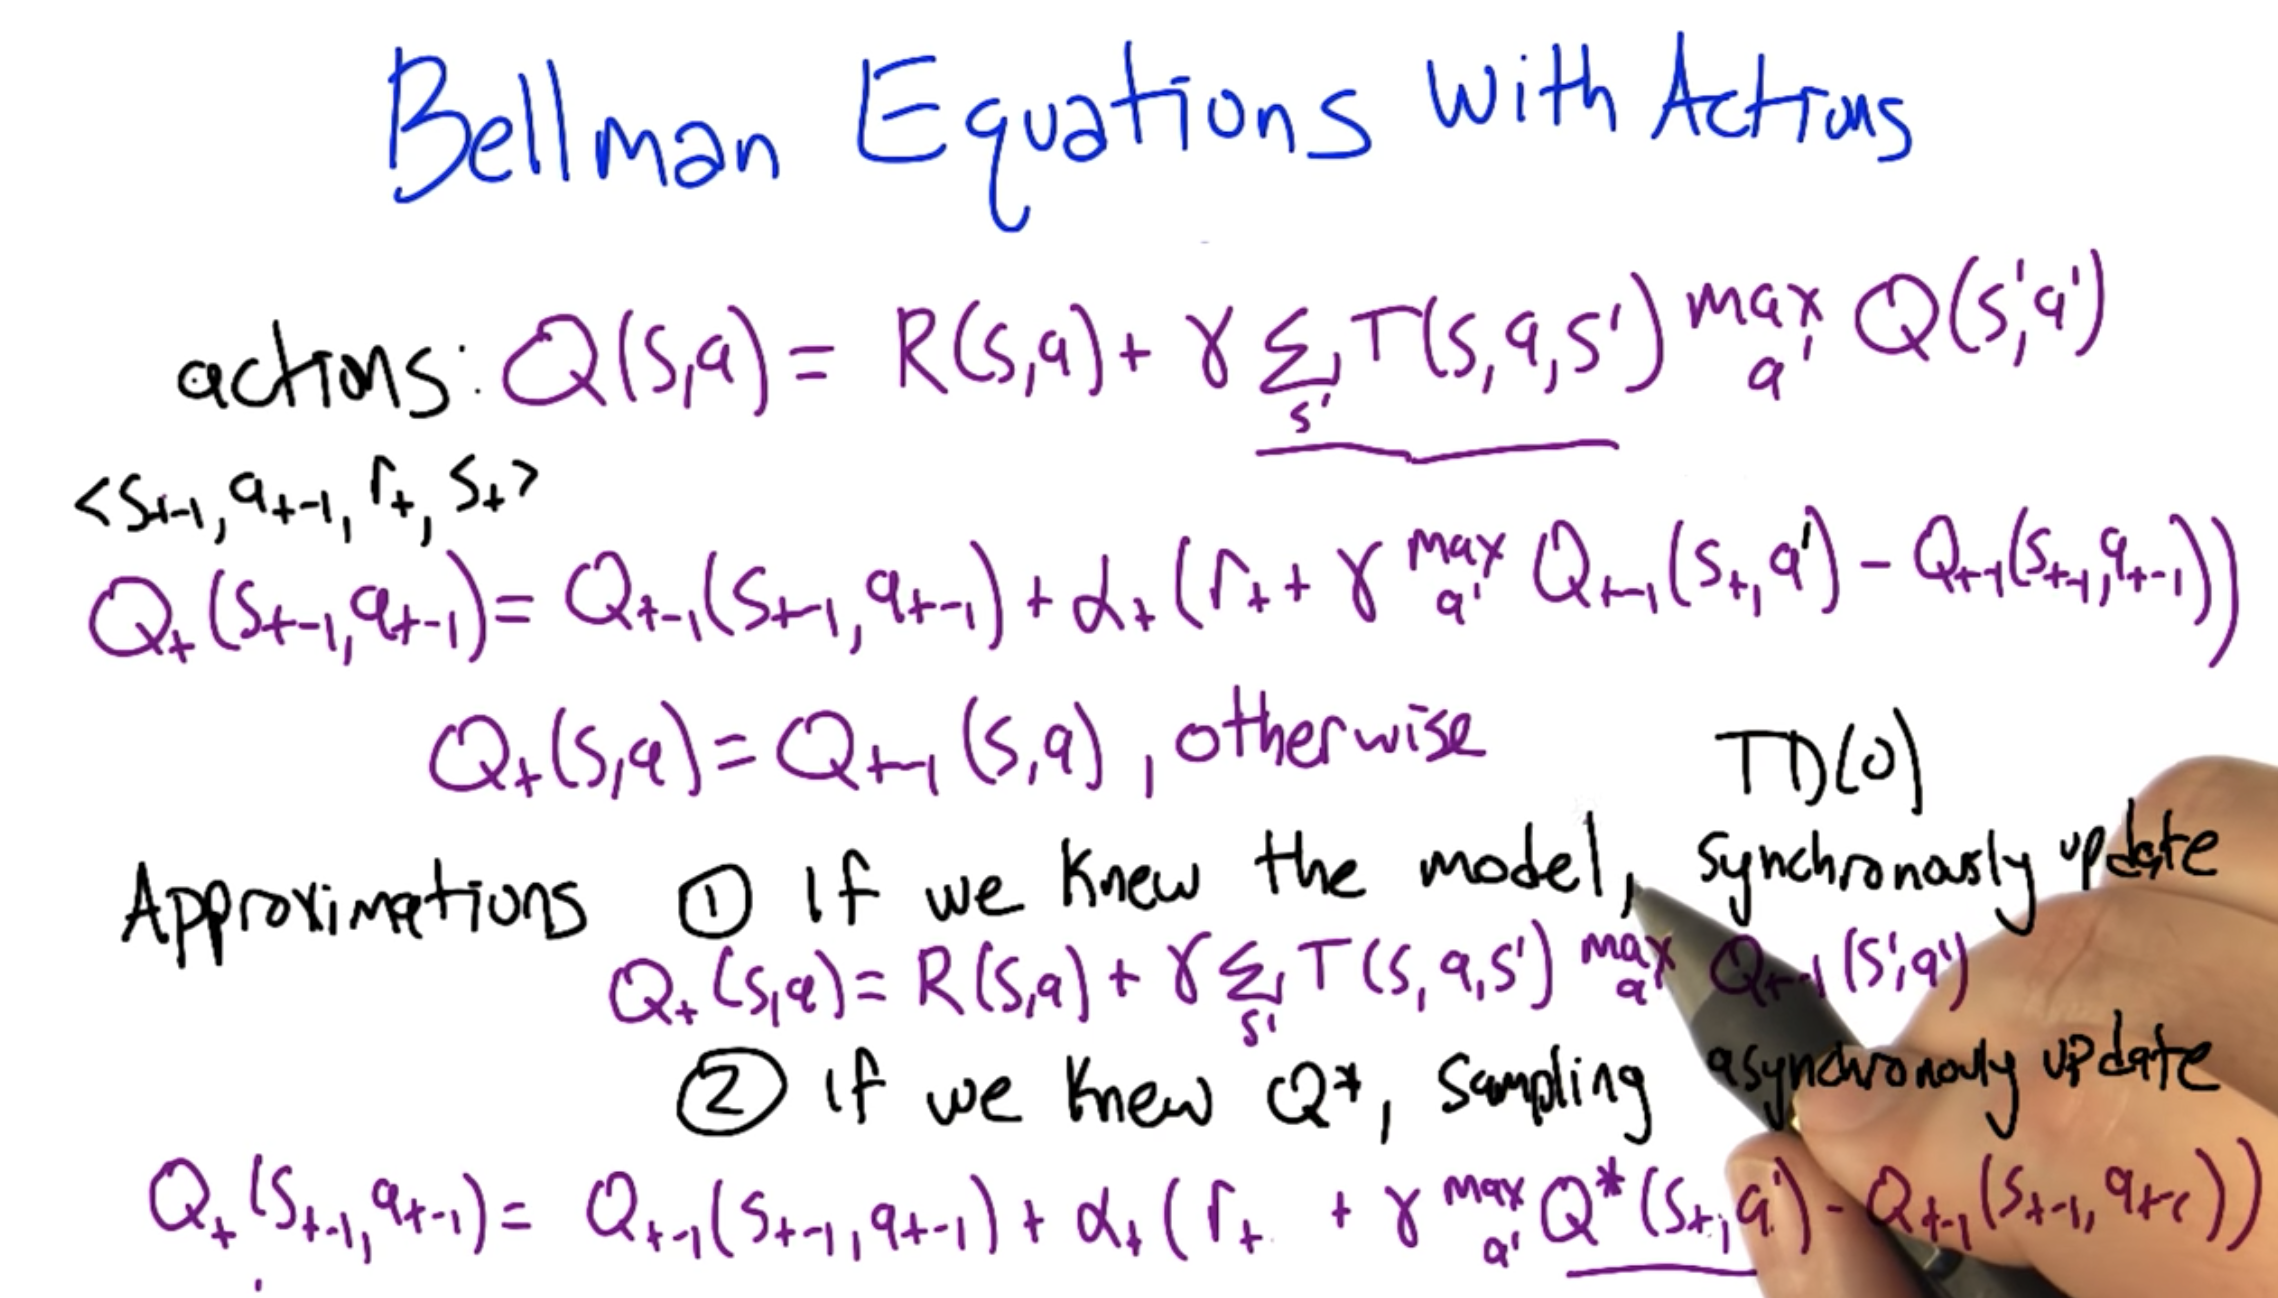 Bellman Equations with Actions
actions: Q(s,a) = R(s,a) + γ Σ_s' T(s,a,s') max_a' Q(s',a')
<s_t-1, a_t-1, r_t, s_t>
Q_t(s_t-1, a_t-1) = Q_t-1(s_t-1, a_t-1) + α_t(r_t + γ max_a' Q_t-1(s_t, a') - Q_t-1(s_t-1, a_t-1))
Q_t(s,a) = Q_t-1(s,a), otherwise
TD(0)
Approximations ① If we knew the model, synchronously update
Q_t(s,a) = R(s,a) + γ Σ_s' T(s,a,s') max_a' Q_t-1(s',a')
② If we knew Q*, sampling asynchronously update
Q_t(s_t-1, a_t-1) = Q_t-1(s_t-1, a_t-1) + α_t(r_t + γ max_a' Q*(s_t, a') - Q_t-1(s_t-1, a_t-1))